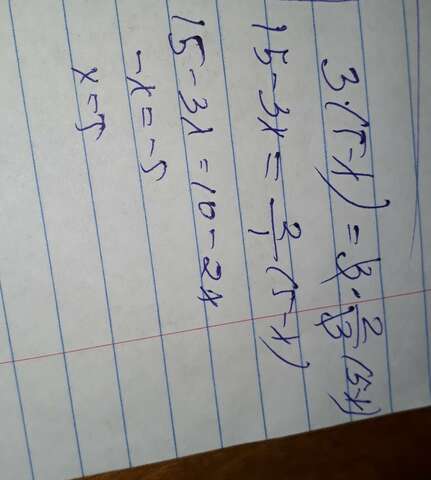 3·(5-x) = 3·2/3(5-x)
15-3x = 2/1·(5-x)
15-3x = 10-2x
-x = -5
x = 5